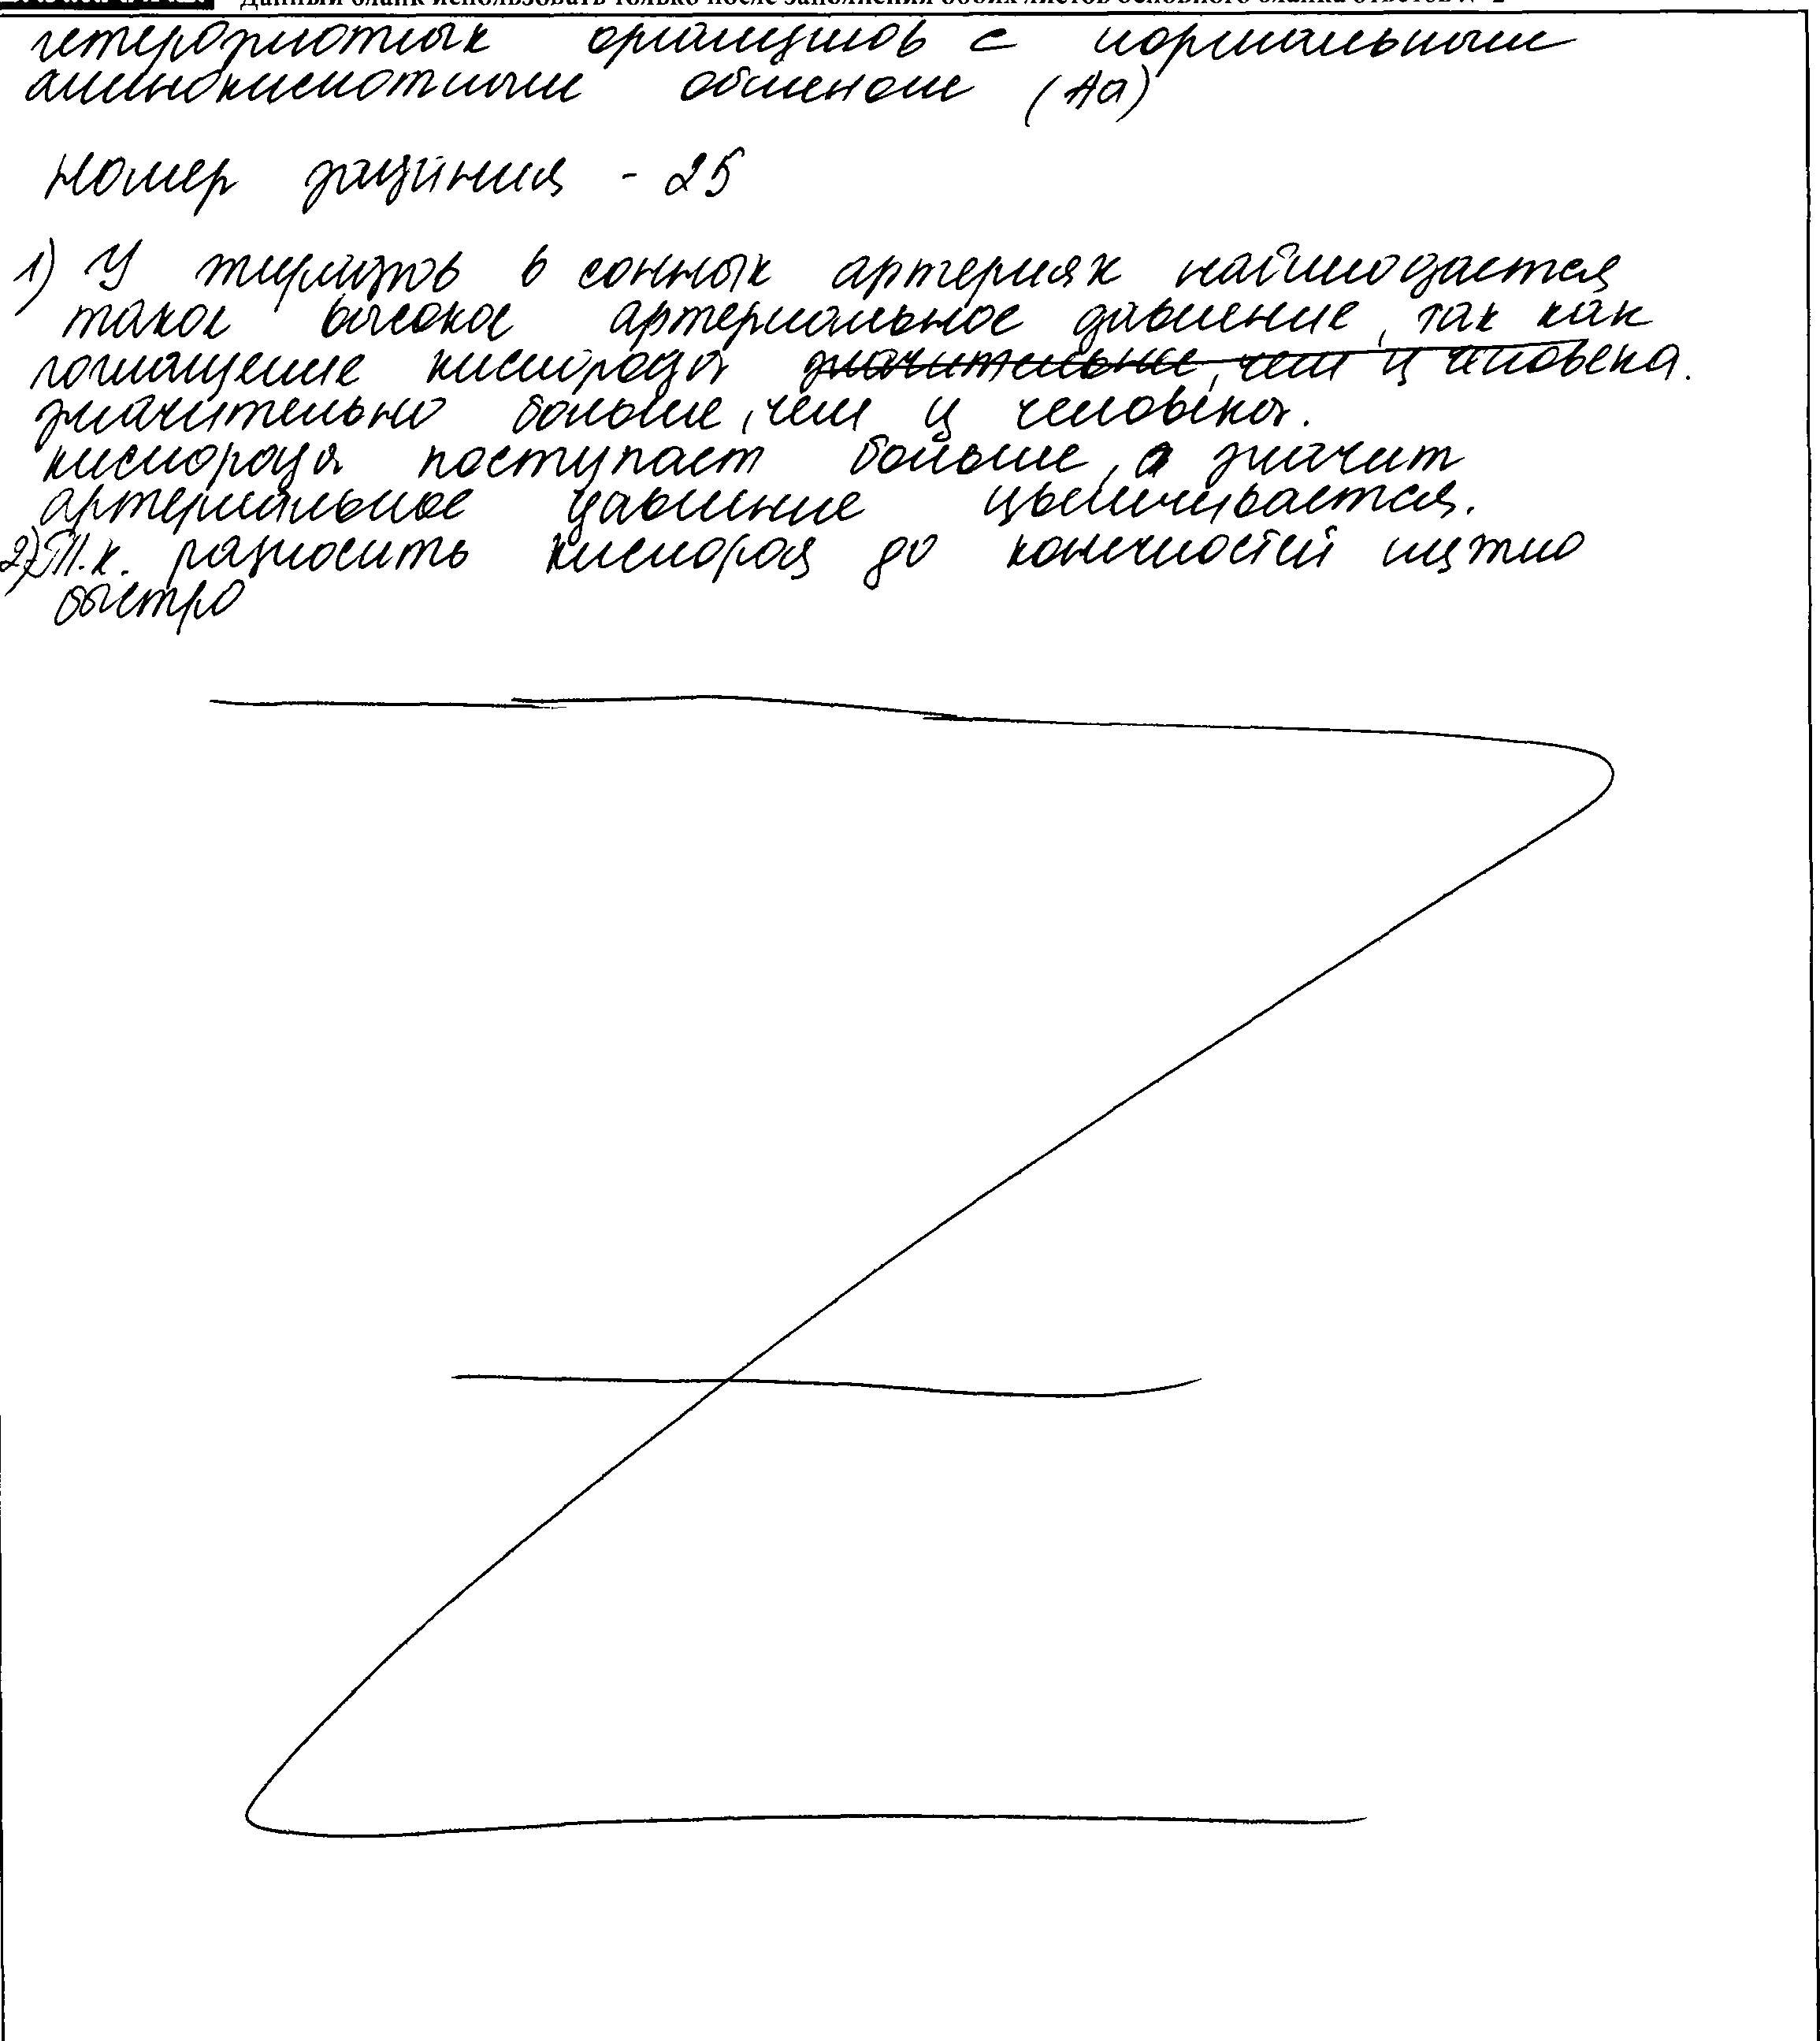 Данный бланк использовать только после заполнения обоих листов основного бланка ответов № 2
гетерозиготных организмов с нормальным
аминокислотным обменом (Аа)
Номер задания - 25
1) У жирафов в сонных артериях наблюдается
такое высокое артериальное давление, так как
поглащение кислорода значительнее, чем у человека.
значительно больше, чем у человека.
кислорода поступает больше, а значит
артериальное давление увеличивается.
2) Т.к. разносить кислород до конечностей нужно
быстро